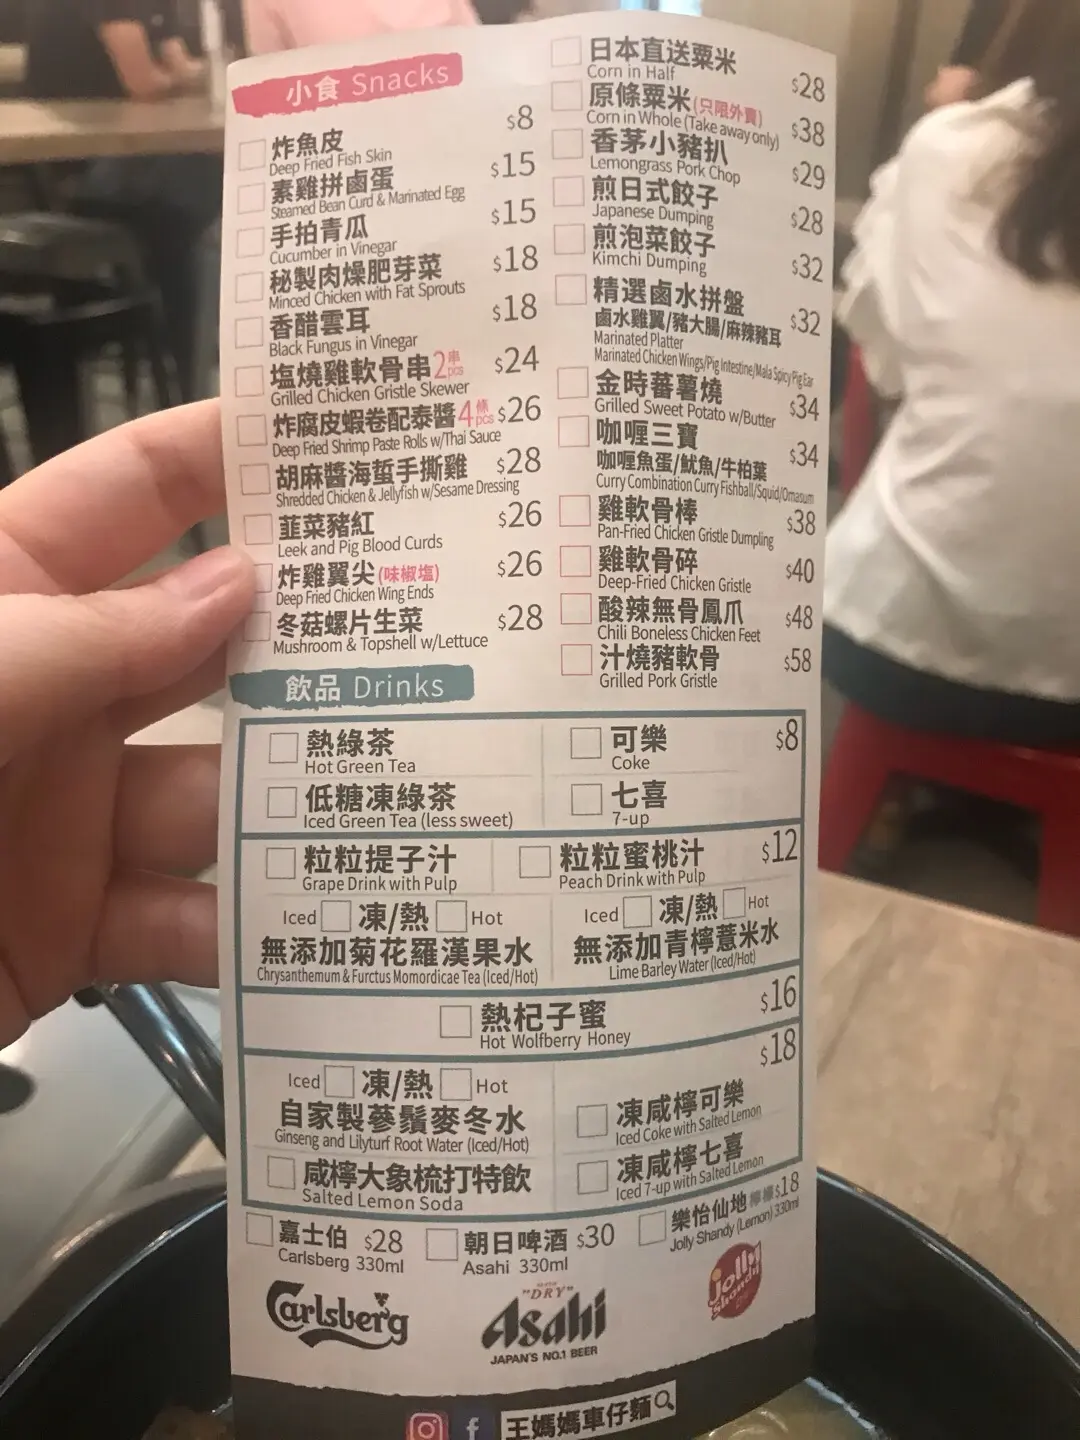 小食 Snacks
炸魚皮 $8
Deep Fried Fish Skin
素雞拼鹵蛋 $15
Steamed Bean Curd & Marinated Egg
手拍青瓜 $15
Cucumber in Vinegar
秘製肉燥肥芽菜 $18
Minced Chicken with Fat Sprouts
香醋雲耳 $18
Black Fungus in Vinegar
塩燒雞軟骨串 2串 pcs $24
Grilled Chicken Gristle Skewer
炸腐皮蝦卷配泰醬 4條 pcs $26
Deep Fried Shrimp Paste Rolls w/Thai Sauce
胡麻醬海蜇手撕雞 $28
Shredded Chicken & Jellyfish w/Sesame Dressing
韮菜豬紅 $26
Leek and Pig Blood Curds
炸雞翼尖(味椒塩) $26
Deep Fried Chicken Wing Ends
冬菇螺片生菜 $28
Mushroom & Topshell w/Lettuce
日本直送粟米 $28
Corn in Half
原條粟米(只限外賣) $38
Corn in Whole (Take away only)
香茅小豬扒 $29
Lemongrass Pork Chop
煎日式餃子 $28
Japanese Dumping
煎泡菜餃子 $32
Kimchi Dumping
精選鹵水拼盤 $32
鹵水雞翼/豬大腸/麻辣豬耳
Marinated Platter
Marinated Chicken Wings/Pig Intestine/Mala Spicy Pig Ear
金時蕃薯燒 $34
Grilled Sweet Potato w/Butter
咖喱三寶 $34
咖喱魚蛋/魷魚/牛柏葉
Curry Combination Curry Fishball/Squid/Omasum
雞軟骨棒 $38
Pan-Fried Chicken Gristle Dumpling
雞軟骨碎 $40
Deep-Fried Chicken Gristle
酸辣無骨鳳爪 $48
Chili Boneless Chicken Feet
汁燒豬軟骨 $58
Grilled Pork Gristle
飲品 Drinks
熱綠茶 可樂 $8
Hot Green Tea Coke
低糖凍綠茶 七喜
Iced Green Tea (less sweet) 7-up
粒粒提子汁 粒粒蜜桃汁 $12
Grape Drink with Pulp Peach Drink with Pulp
Iced 凍/熱 Hot Iced 凍/熱 Hot
無添加菊花羅漢果水 無添加青檸薏米水
Chrysanthemum & Furctus Momordicae Tea (Iced/Hot) Lime Barley Water (Iced/Hot)
熱杞子蜜 $16
Hot Wolfberry Honey
$18
Iced 凍/熱 Hot
自家製蔘鬚麥冬水
Ginseng and Lilyturf Root Water (Iced/Hot)
凍咸檸可樂
Iced Coke with Salted Lemon
咸檸大象梳打特飲
Salted Lemon Soda
凍咸檸七喜
Iced 7-up with Salted Lemon
嘉士伯 $28
Carlsberg 330ml
朝日啤酒 $30
Asahi 330ml
樂怡仙地 檸檬 $18
Jolly Shandy (Lemon) 330ml
Carlsberg
"DRY"
Asahi
JAPAN'S NO.1 BEER
Jolly
Shandy
王媽媽車仔麵